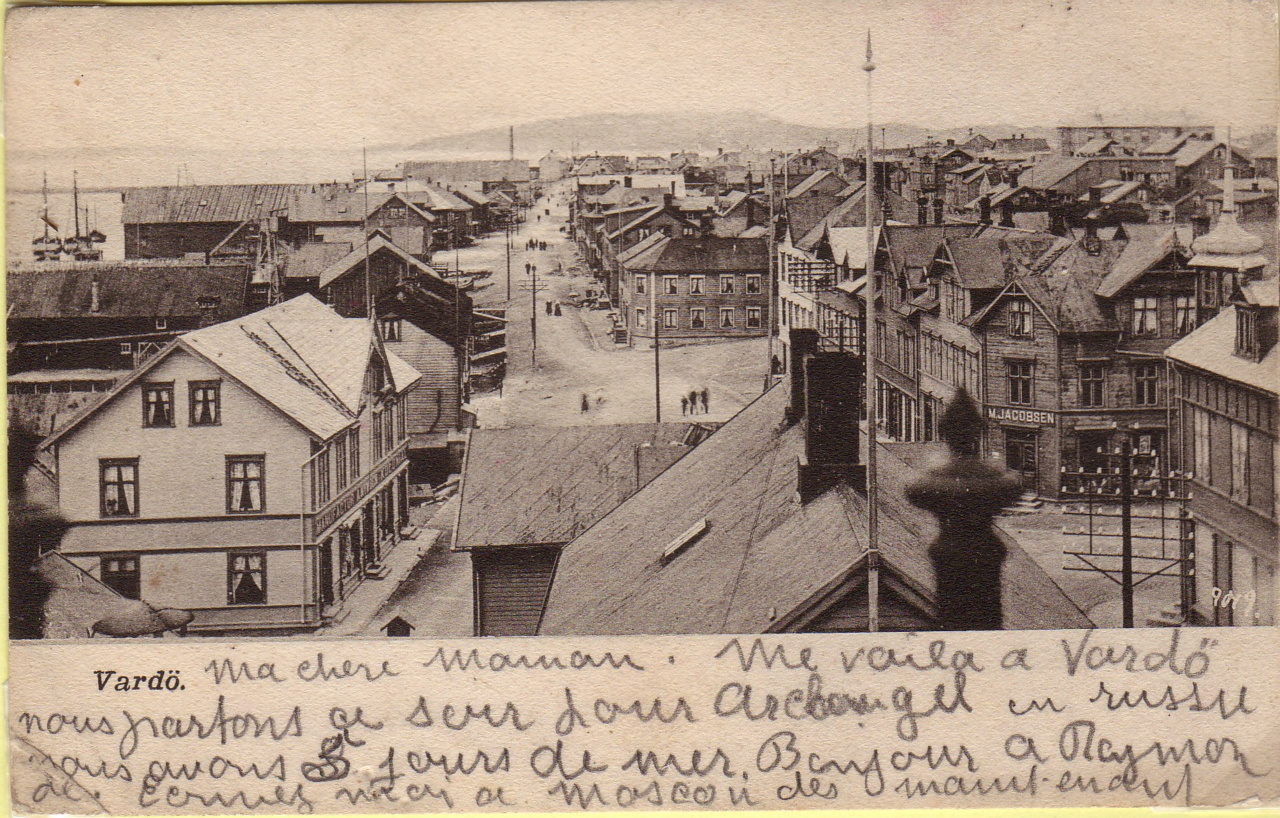 M. JACOBSEN
9019.
Vardö. Ma chere Maman. Me voila a Vardö
nous partons ce soir pour Archangel en russie
nous avons 3 jours de mer. Bonjour a Raymon
de. Ecrivez moi a Moscou dès maintenant